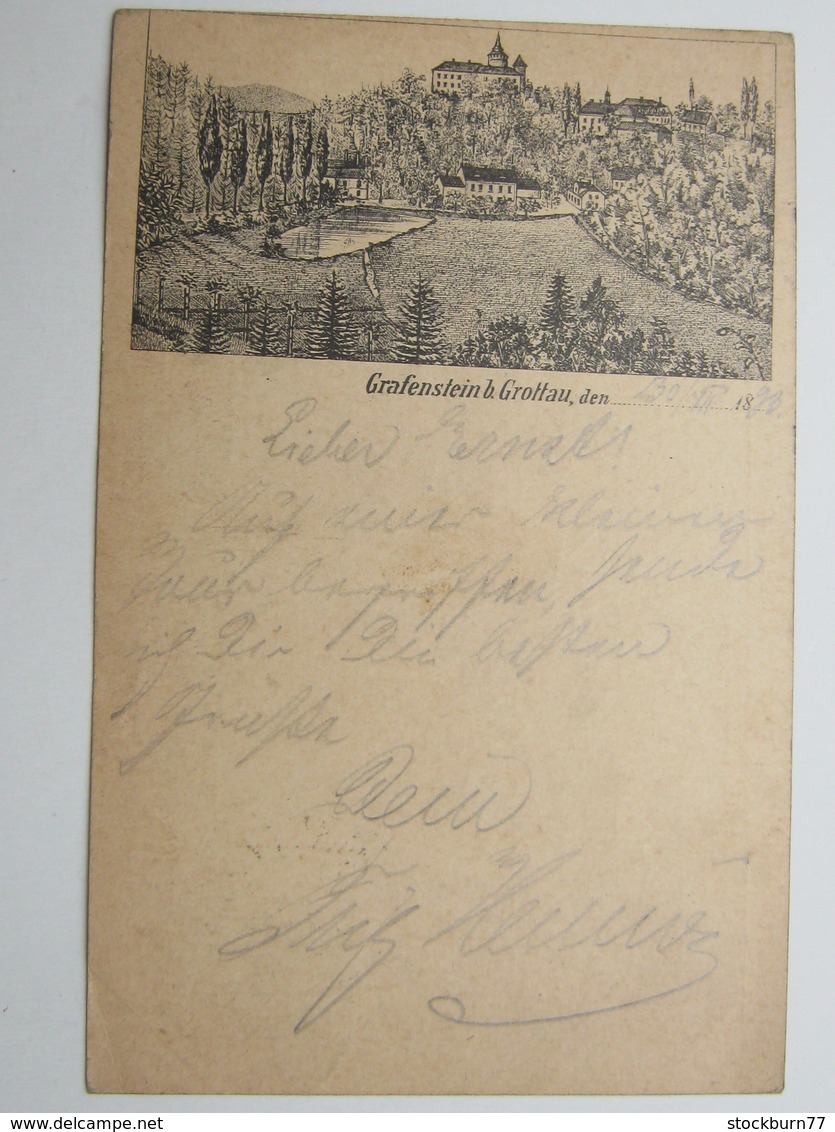 Grafenstein b. Grottau, den 30 VII 1893.
Lieber Ernst!
Auf einer kleinen
Tour begriffen, sende
ich Dir die besten
Grüße
Dein
Fritz
www.delcampe.net
stockburn77